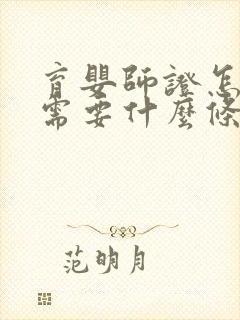 育嬰師證怎
需要什麼條
范明月